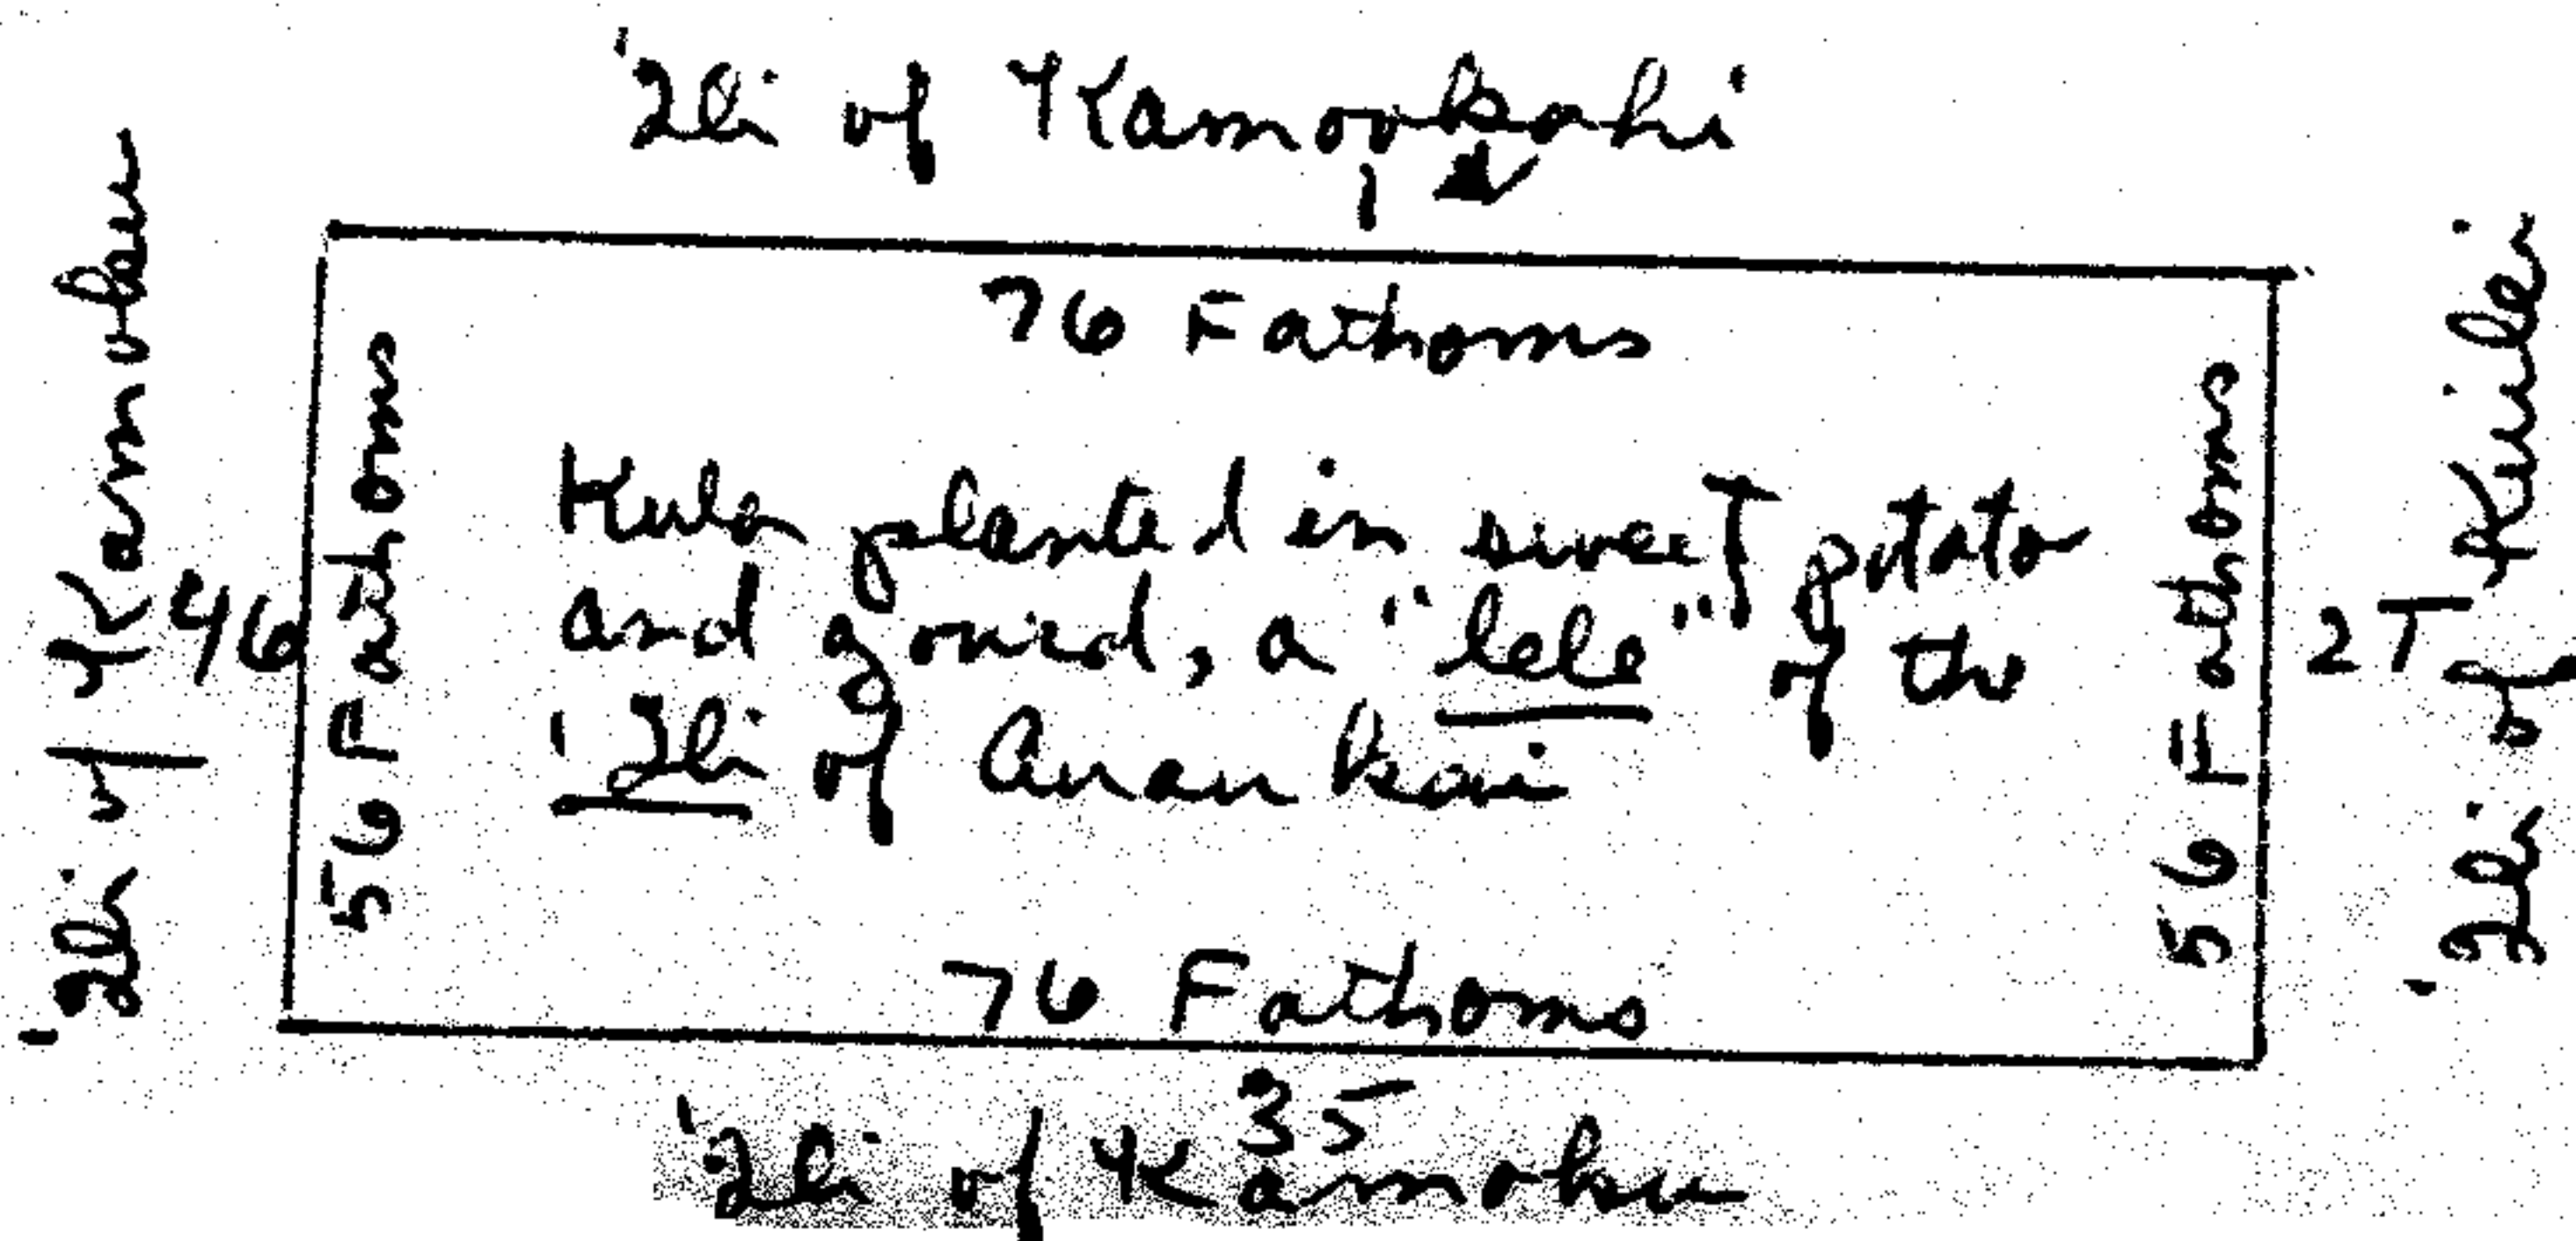 'Ili of Kamookahi
76 Fathoms
'Ili of Kamoku
46
56 Fathoms
Kula planted in sweet potato
and gourd, a "lele" of the
'Ili of Anaukai
56 Fathoms
2T
'Ili of Kuilei
76 Fathoms
35
'Ili of Kamoku